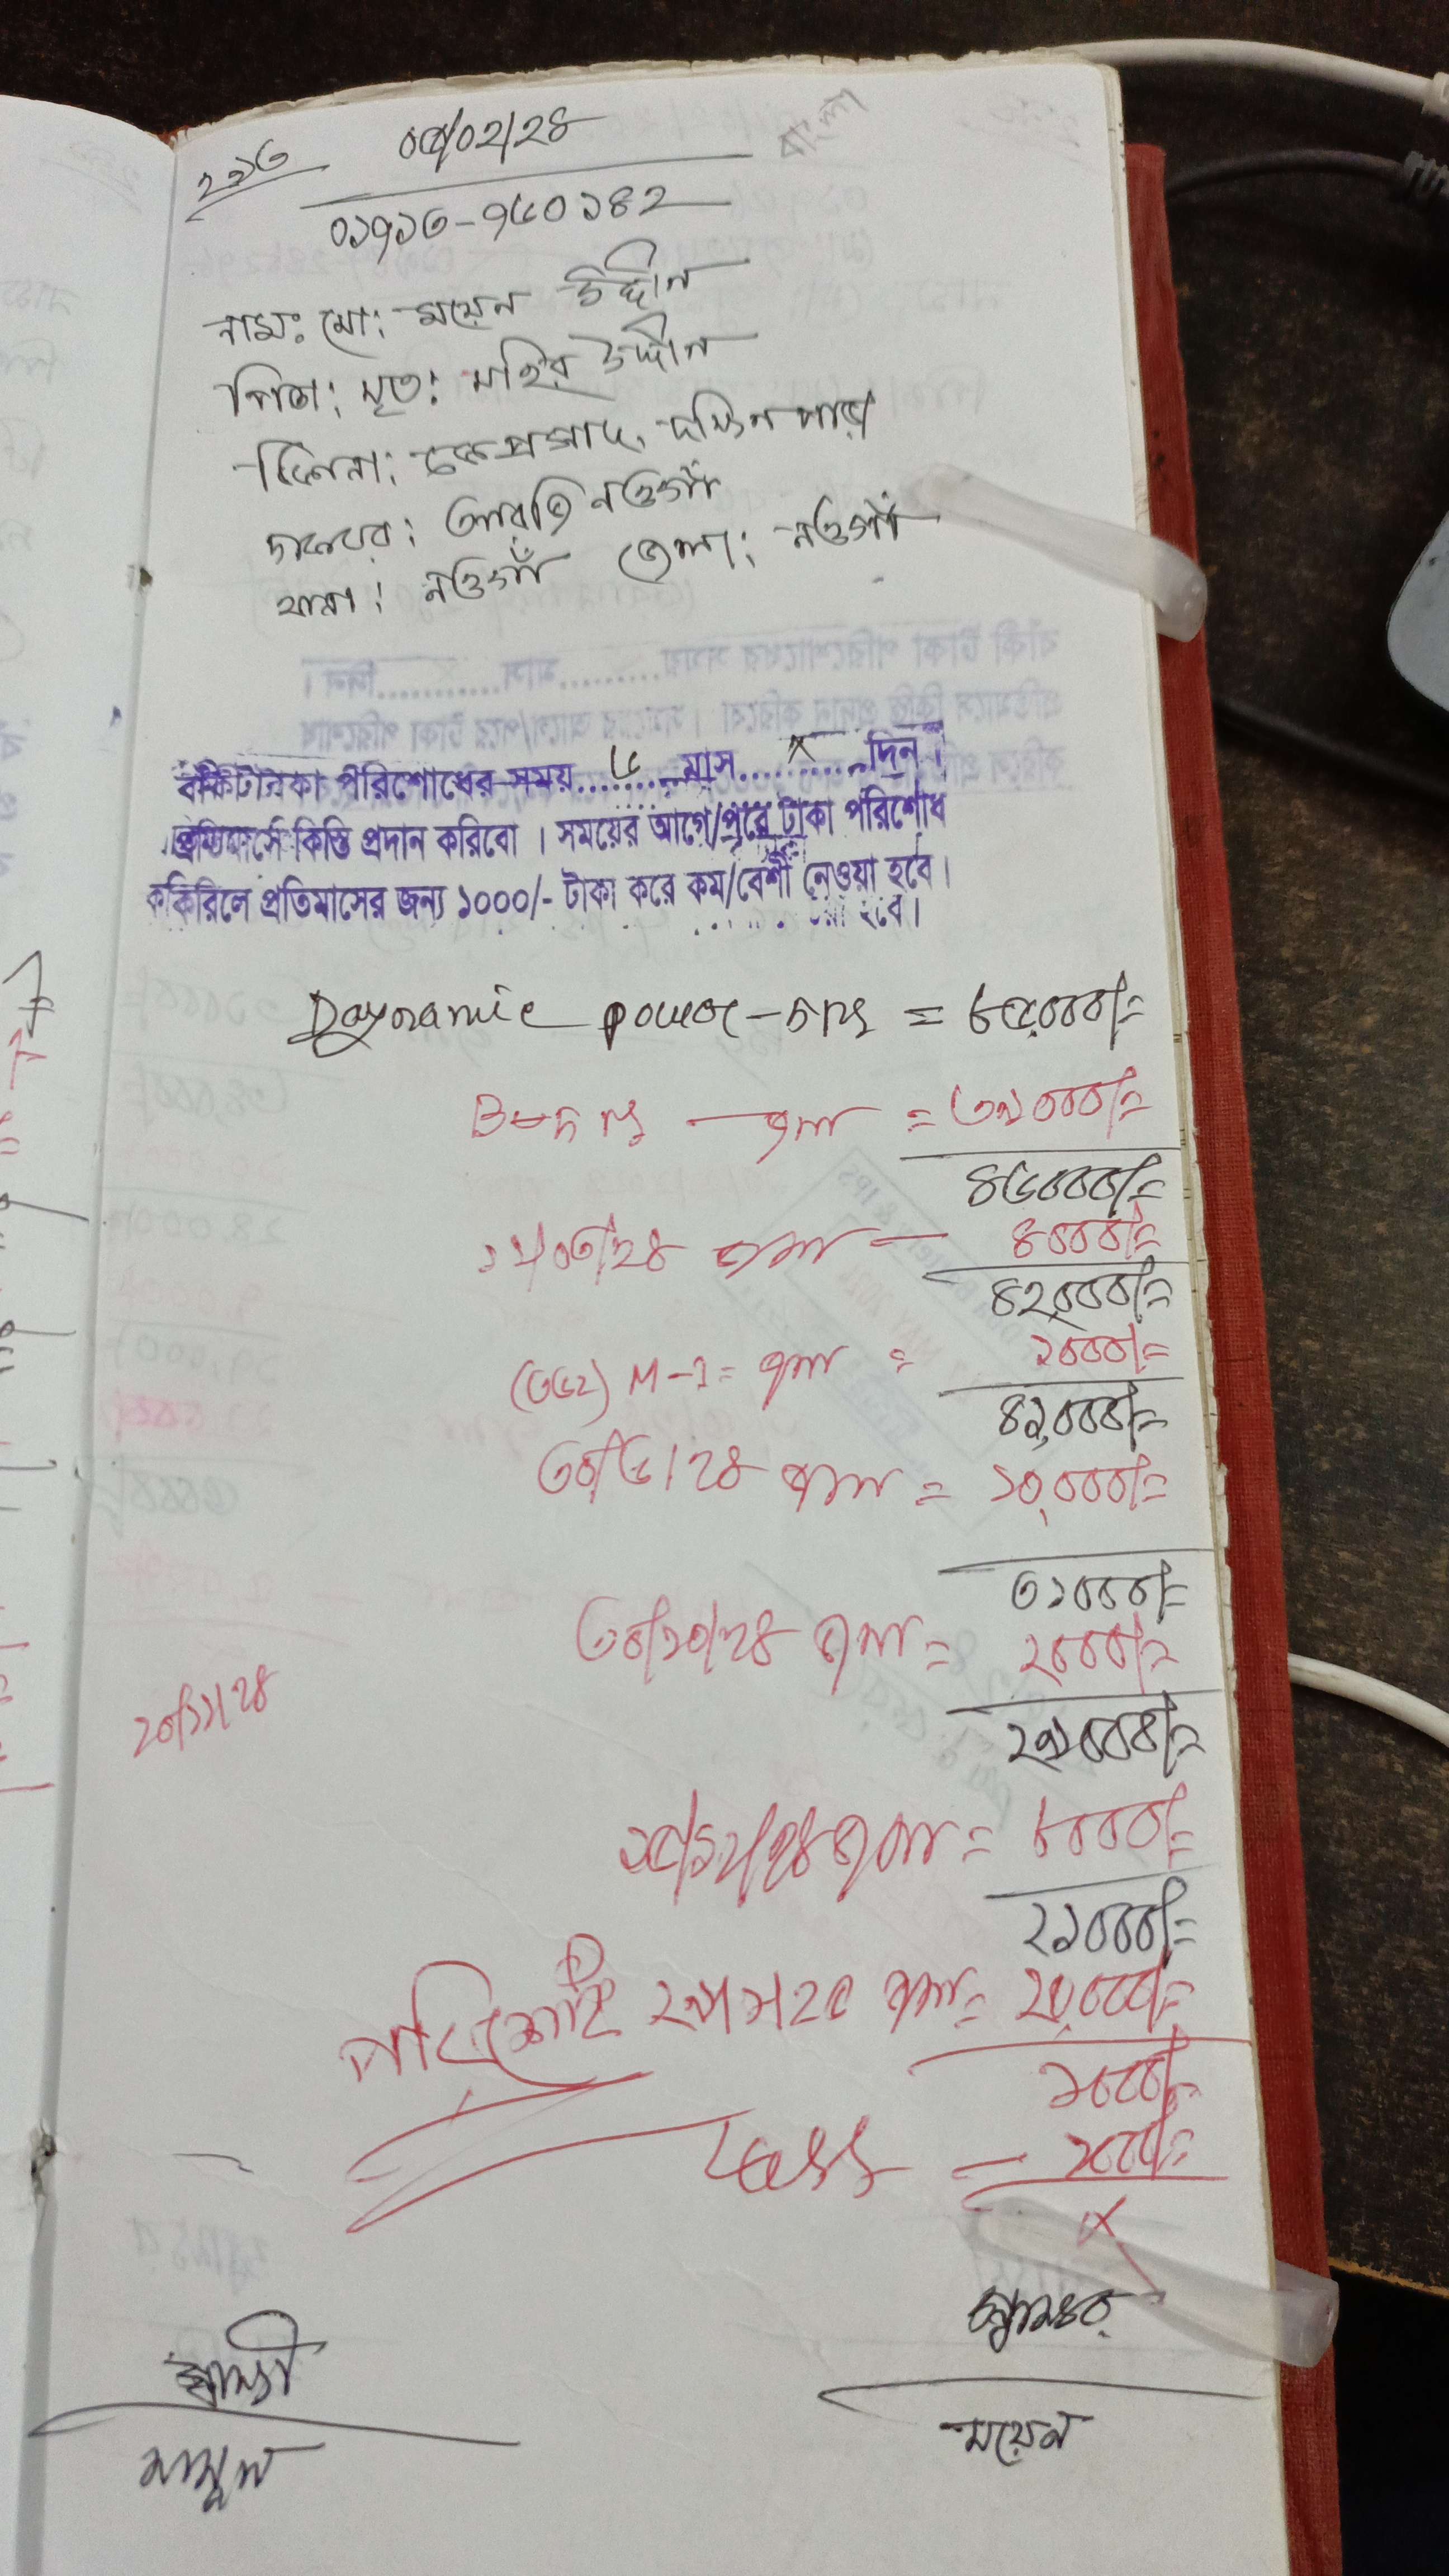 ২১৩ ০৫/০২/২৪ বাংলা
০১৭১৩-৭৬০১৪২
নামঃ মো: ময়েন উদ্দীন
পিতা: মৃত: মহির উদ্দীন
ঠিকানা: চকপ্রসাদ, দক্ষিন পাড়া
ডাকঘর: আরজি নওগাঁ
থানা: নওগাঁ জেলা: নওগাঁ
টাকা পরিশোধের সময়..৬..মাস..x..দিন।
কিস্তি প্রদান করিবো। সময়ের আগে/পরে টাকা পরিশোধ
করিলে প্রতিমাসের জন্য ১০০০/- টাকা করে কম/বেশী নেওয়া হবে।
Daynamic power-৮পিছ = ৮৫,০০০/=
B-৮ পিছ - জমা = ৩৯০০০/=
৪৬০০০/=
১২/০৩/২৪ জমা - ৪০০০/=
৪২,০০০/=
(৩৬২) M-1 = জমা = ১০০০/=
৪১,০০০/=
৩০/৬/২৪ জমা = ১০,০০০/=
৩১০০০/=
৩০/১০/২৪ জমা = ২০০০/=
২০/১১/২৪
২৯০০০/=
১৫/১২/২৪ জমা = ৮০০০/=
২১০০০/=
পরিশোধ ২৯/১/২৫ জমা = ২০,০০০/=
১০০০/=
Less = ১০০০/=
x
স্বাক্ষর
স্বাক্ষী
ময়েন
মামুন